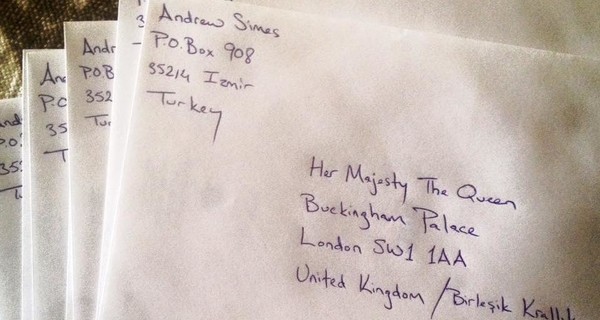 Andrew Simes
P.O. Box 908
35214 Izmir
Turkey
Her Majesty The Queen
Buckingham Palace
London SW1 1AA
United Kingdom / Birleşik Krallık
Andr
P.O.B
352
Tur
An
P.O
35
T
nd
.O.
35